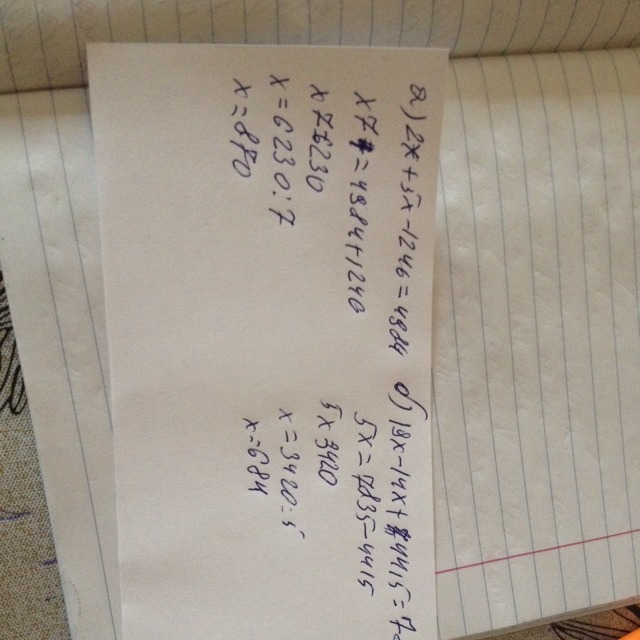 а) 2x+5x-1246=4984
x7=4984+1246
x7=6230
x=6230:7
x=890
б) 19x-14x+4415=7
5x=7835-4415
5x 3420
x=3420:5
x=684